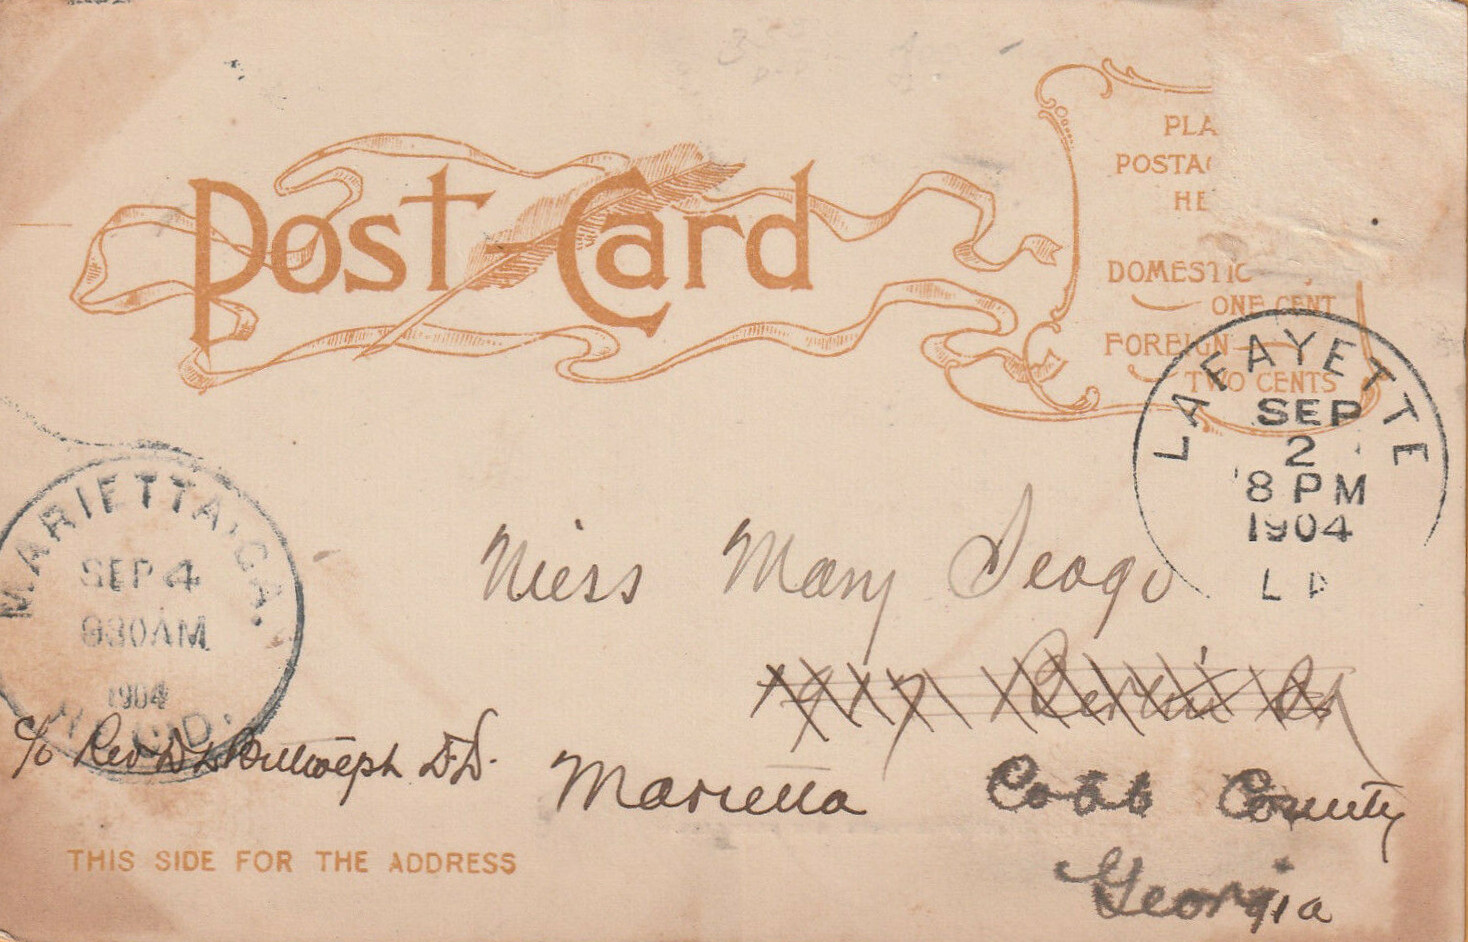 Post Card
PLA
POSTAG
HE
DOMESTIC
ONE CENT
FOREIGN
TWO CENTS
LAFAYETTE
SEP
2
8 PM
1904
MARIETTA, GA.
SEP 4
930AM
1904
REC'D.
Miss Mary Seago
917 Berlin St
c/o Rev D. L. D.D.
Marietta Cobb County
Georgia
THIS SIDE FOR THE ADDRESS